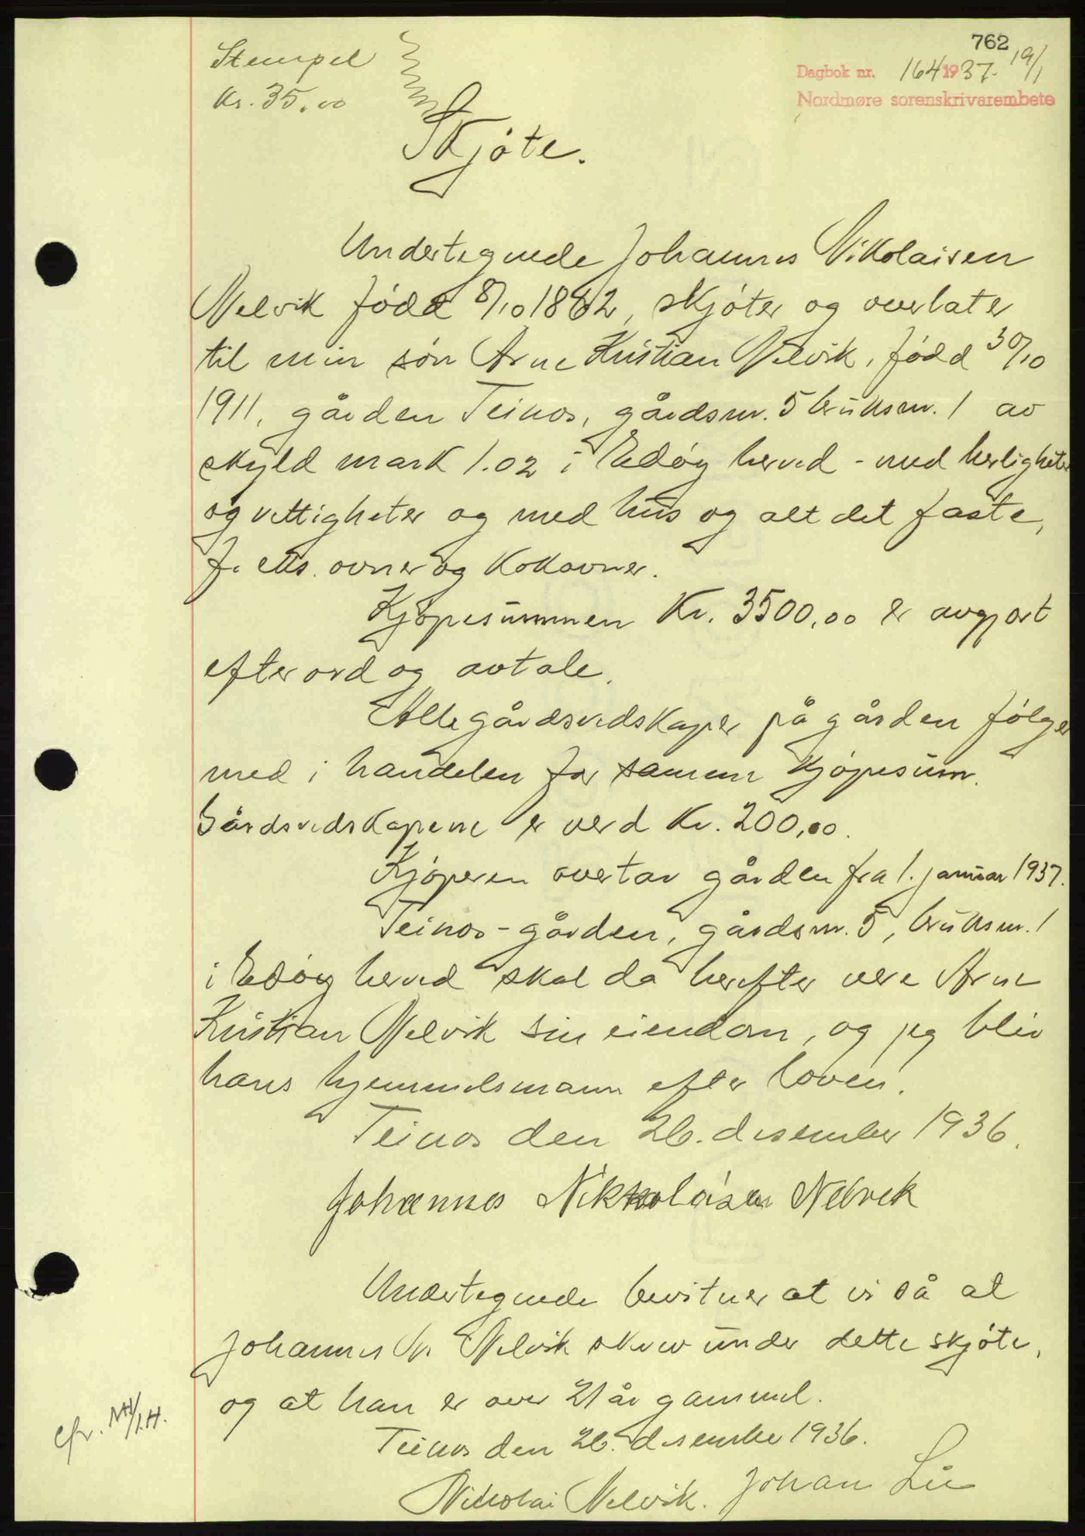 762
Stempel
Kr. 35.00
Dagbok nr. 164 1937. 19/1
Nordmøre sorenskrivarembete
Skjøte.
Undertegnede Johannes Nikolaisen
Nelvik født 8/10 1862, skjøter og overlater
til min søn Arne Kristian Nelvik, fødd 30/10
1911, gården Teinos, gårdsnr. 5 bruksnr. 1 av
skyld mark 1.02 i Edøy herred - med herligheter
og rettigheter og med hus og alt det faste,
f. eks. ovner og kokovner.
Kjøpesummen Kr. 3500,00 er avgjort
efter ord og avtale.
Alle gårdsredskaper på gården følger
med i handelen for samme kjøpesum.
Gårdsredskapene er verd Kr. 200,00.
Kjøperen overtar gården fra 1. januar 1937.
Teinos-gården, gårdsnr. 5, bruksnr. 1
i Edøy herred skal da herefter være Arne
Kristian Nelvik sin eiendom, og jeg blir
hans hjemmelsmann efter loven.
Teinos den 26. desember 1936.
Johannes Nikkolaisen Nelvik
Undertegnede bevitner at vi så at
Johannes N. Nelvik skrev under dette skjøte,
og at han er over 21 år gammel.
cfr.
Teinos den 26. desember 1936.
Nikolai Nelvik. Johan Lie